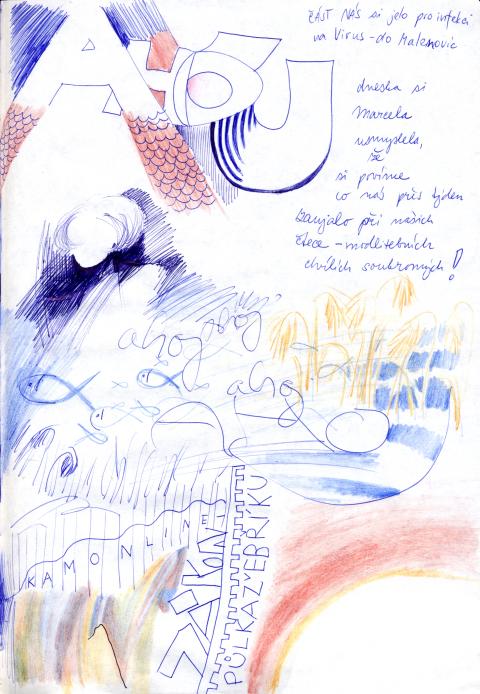 AHOJ
ČÁST NÁS si jelo pro infekci
na Virus - do Malenovic
dneska si
Marcela
usmyslela,
že
si povíme
co nás přes týden
zaujalo při našich
čtece - modlitebních
chvílích soukromých!
ahoj
ahoj
ahoj
KAMONLINE
ZÁKON
PŮLKAZVEBŘÍKU